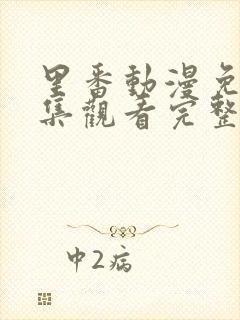 里番動漫免
集觀看完整
中2病